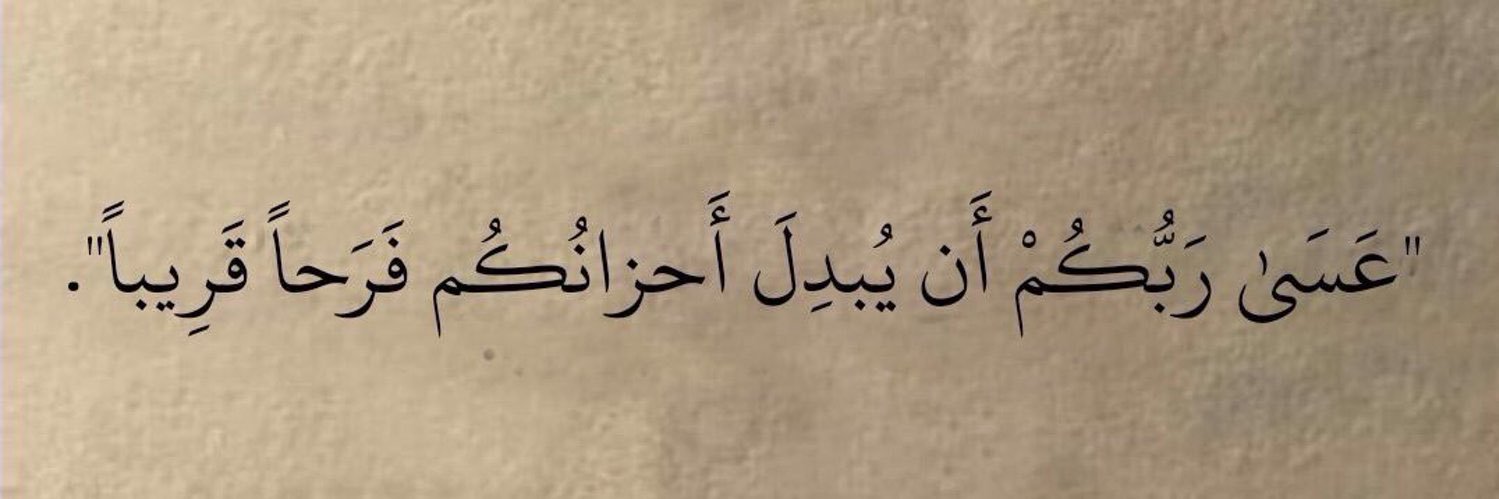 "عَسَىٰ رَبُّكُمْ أَن يُبدِلَ أَحزانُكُم فَرَحاً قَرِيباً".